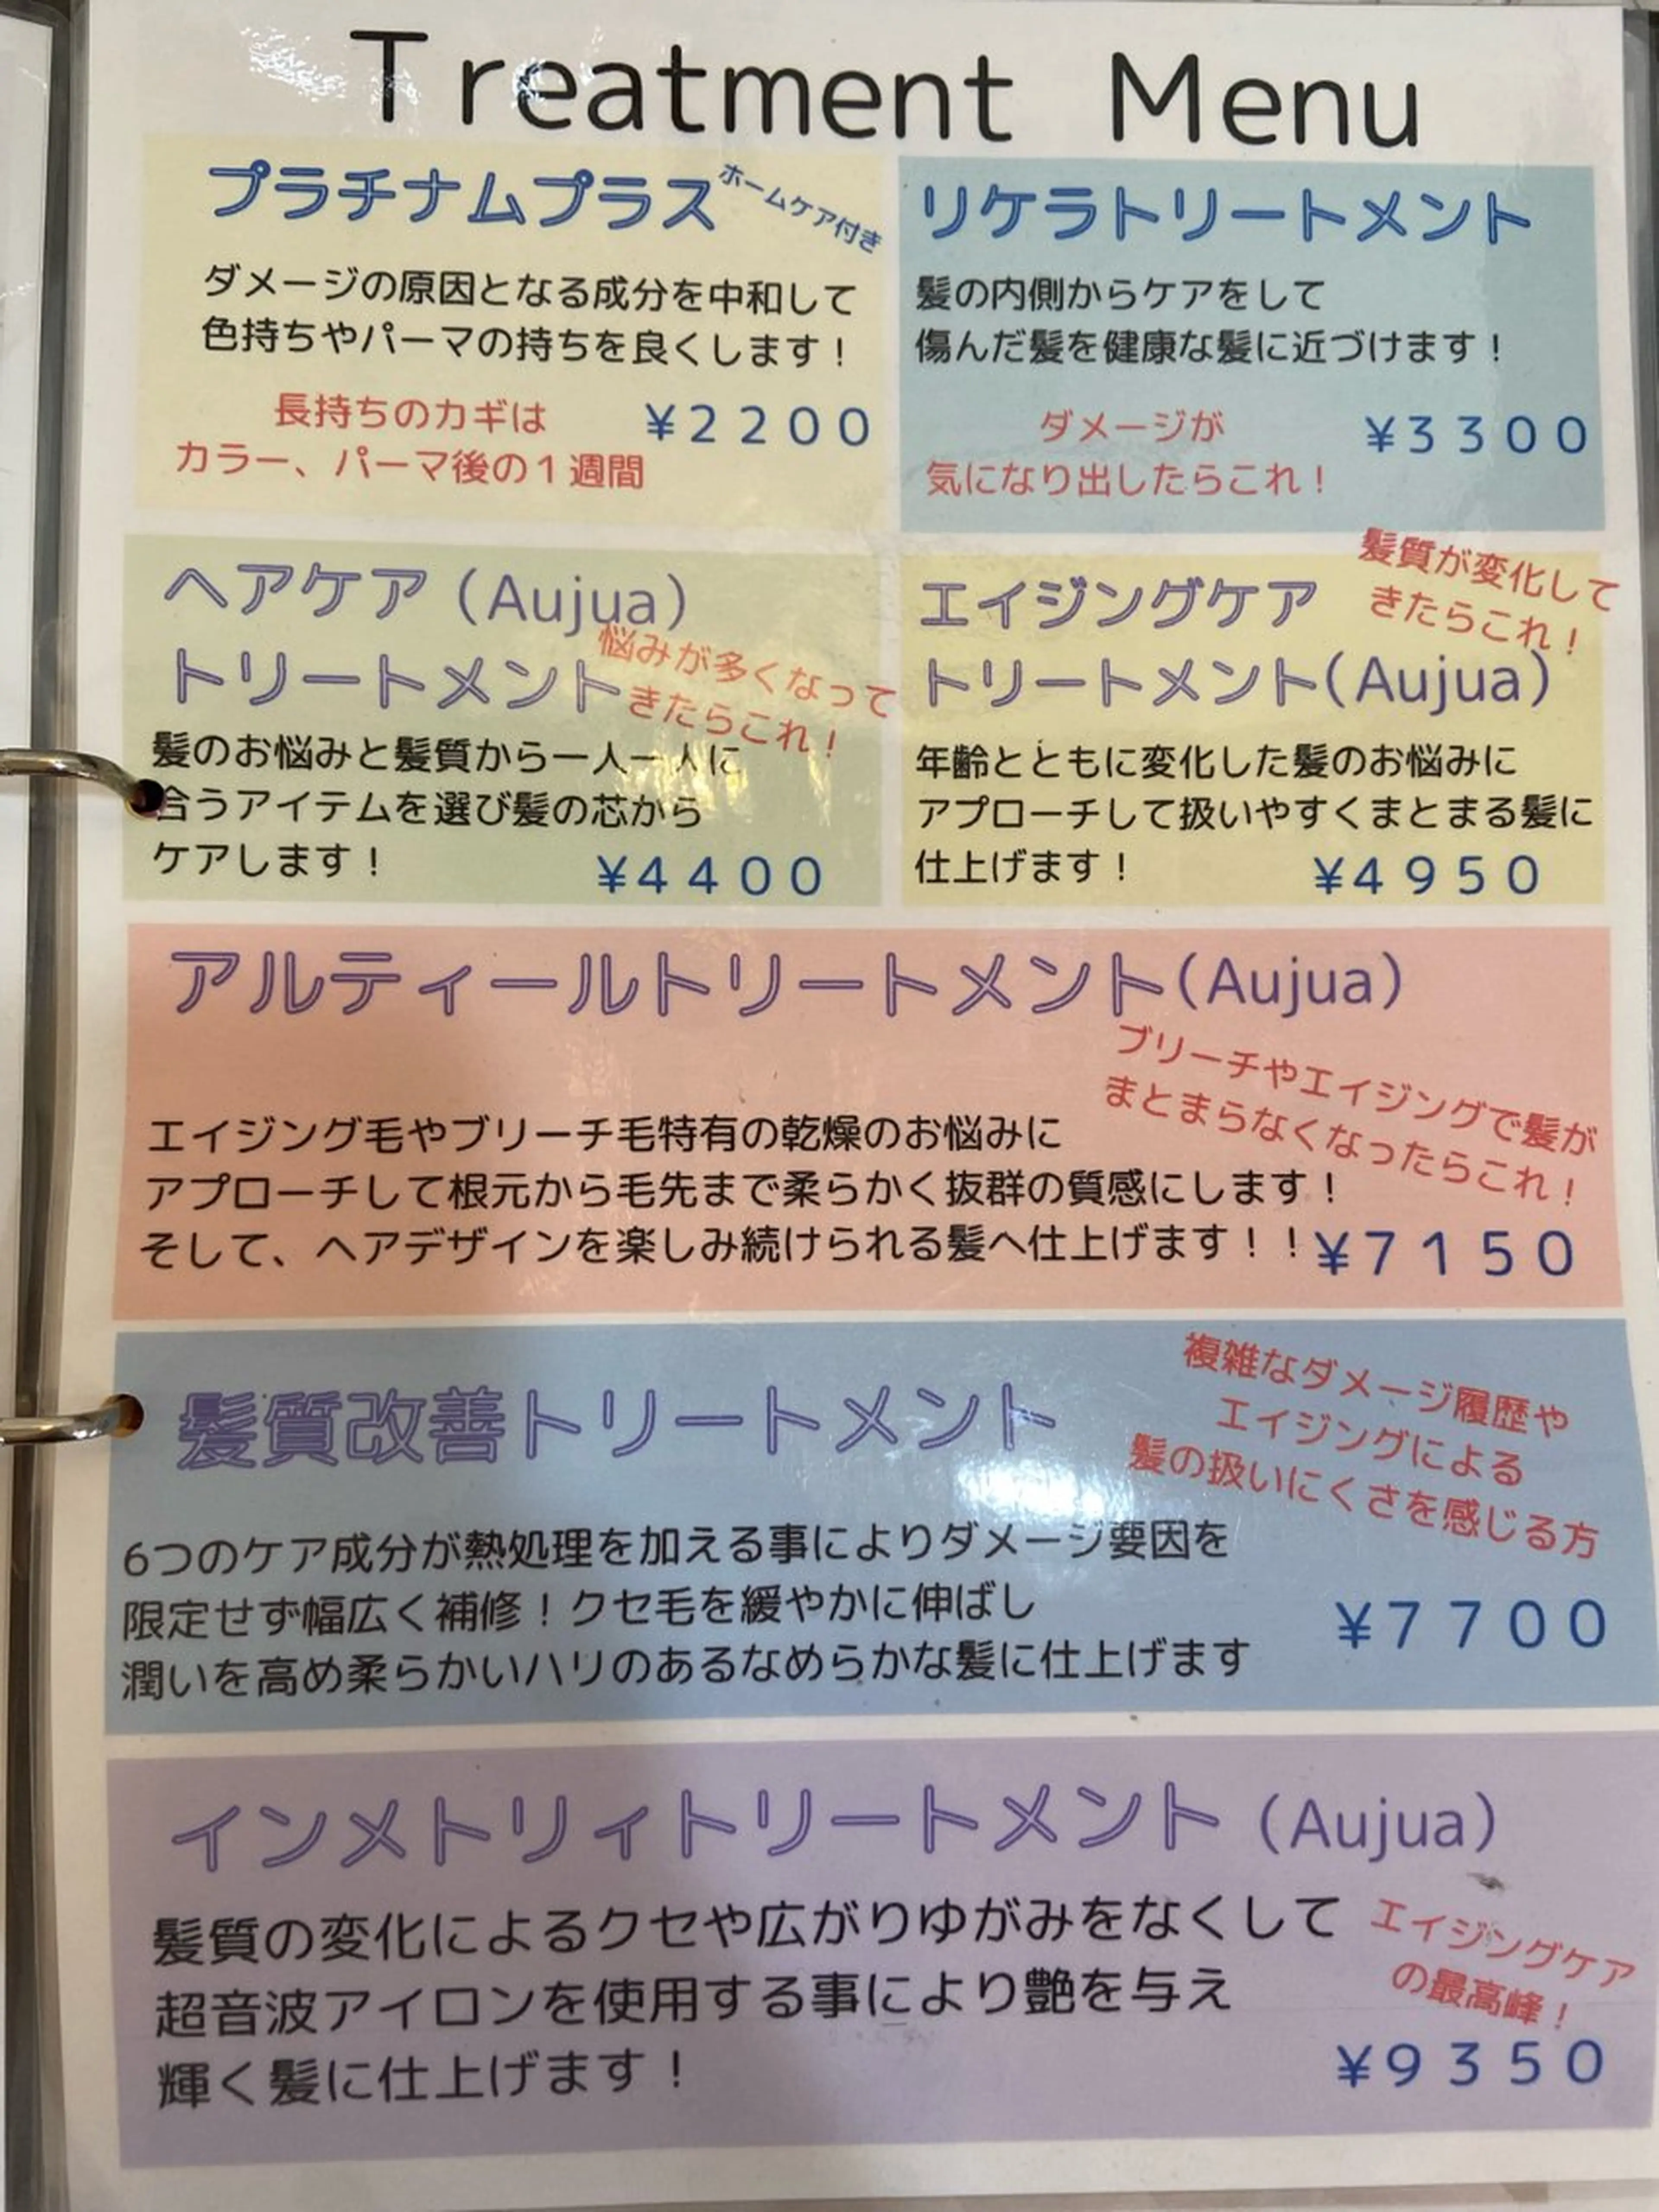 Treatment Menu
プラチナムプラス
ホームケア付き
ダメージの原因となる成分を中和して
色持ちやパーマの持ちを良くします！
長持ちのカギは
カラー、パーマ後の１週間
¥2200
リケラトリートメント
髪の内側からケアをして
傷んだ髪を健康な髪に近づけます！
ダメージが
気になり出したらこれ！
¥3300
ヘアケア（Aujua）
トリートメント
悩みが多くなって
きたらこれ！
髪のお悩みと髪質から一人一人に
合うアイテムを選び髪の芯から
ケアします！
¥4400
エイジングケア
トリートメント(Aujua)
髪質が変化して
きたらこれ！
年齢とともに変化した髪のお悩みに
アプローチして扱いやすくまとまる髪に
仕上げます！
¥4950
アルティールトリートメント(Aujua)
ブリーチやエイジングで髪が
まとまらなくなったらこれ！
エイジング毛やブリーチ毛特有の乾燥のお悩みに
アプローチして根元から毛先まで柔らかく抜群の質感にします！
そして、ヘアデザインを楽しみ続けられる髪へ仕上げます！！
¥7150
髪質改善トリートメント
複雑なダメージ履歴や
エイジングによる
髪の扱いにくさを感じる方
6つのケア成分が熱処理を加える事によりダメージ要因を
限定せず幅広く補修！クセ毛を緩やかに伸ばし
潤いを高め柔らかいハリのあるなめらかな髪に仕上げます
¥7700
インメトリィトリートメント（Aujua）
髪質の変化によるクセや広がりゆがみをなくして
超音波アイロンを使用する事により艶を与え
輝く髪に仕上げます！
エイジングケア
の最高峰！
¥9350